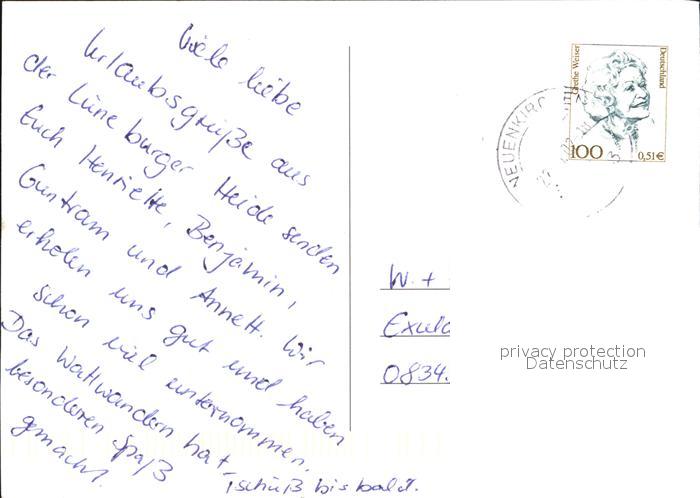 Viele liebe
Urlaubsgrüße aus
der Lüneburger Heide senden
Euch Henriette, Benjamin,
Guntram und Annett. Wir
erholen uns gut und haben
schon viel unternommen.
Das Wattwandern hat
besonderen Spaß
gemacht.
Tschüß bis bald.
NEUENKIRC
Grethe Weiser
Deutschland
100
0,51 €
W. +
0834.
privacy protection
Datenschutz